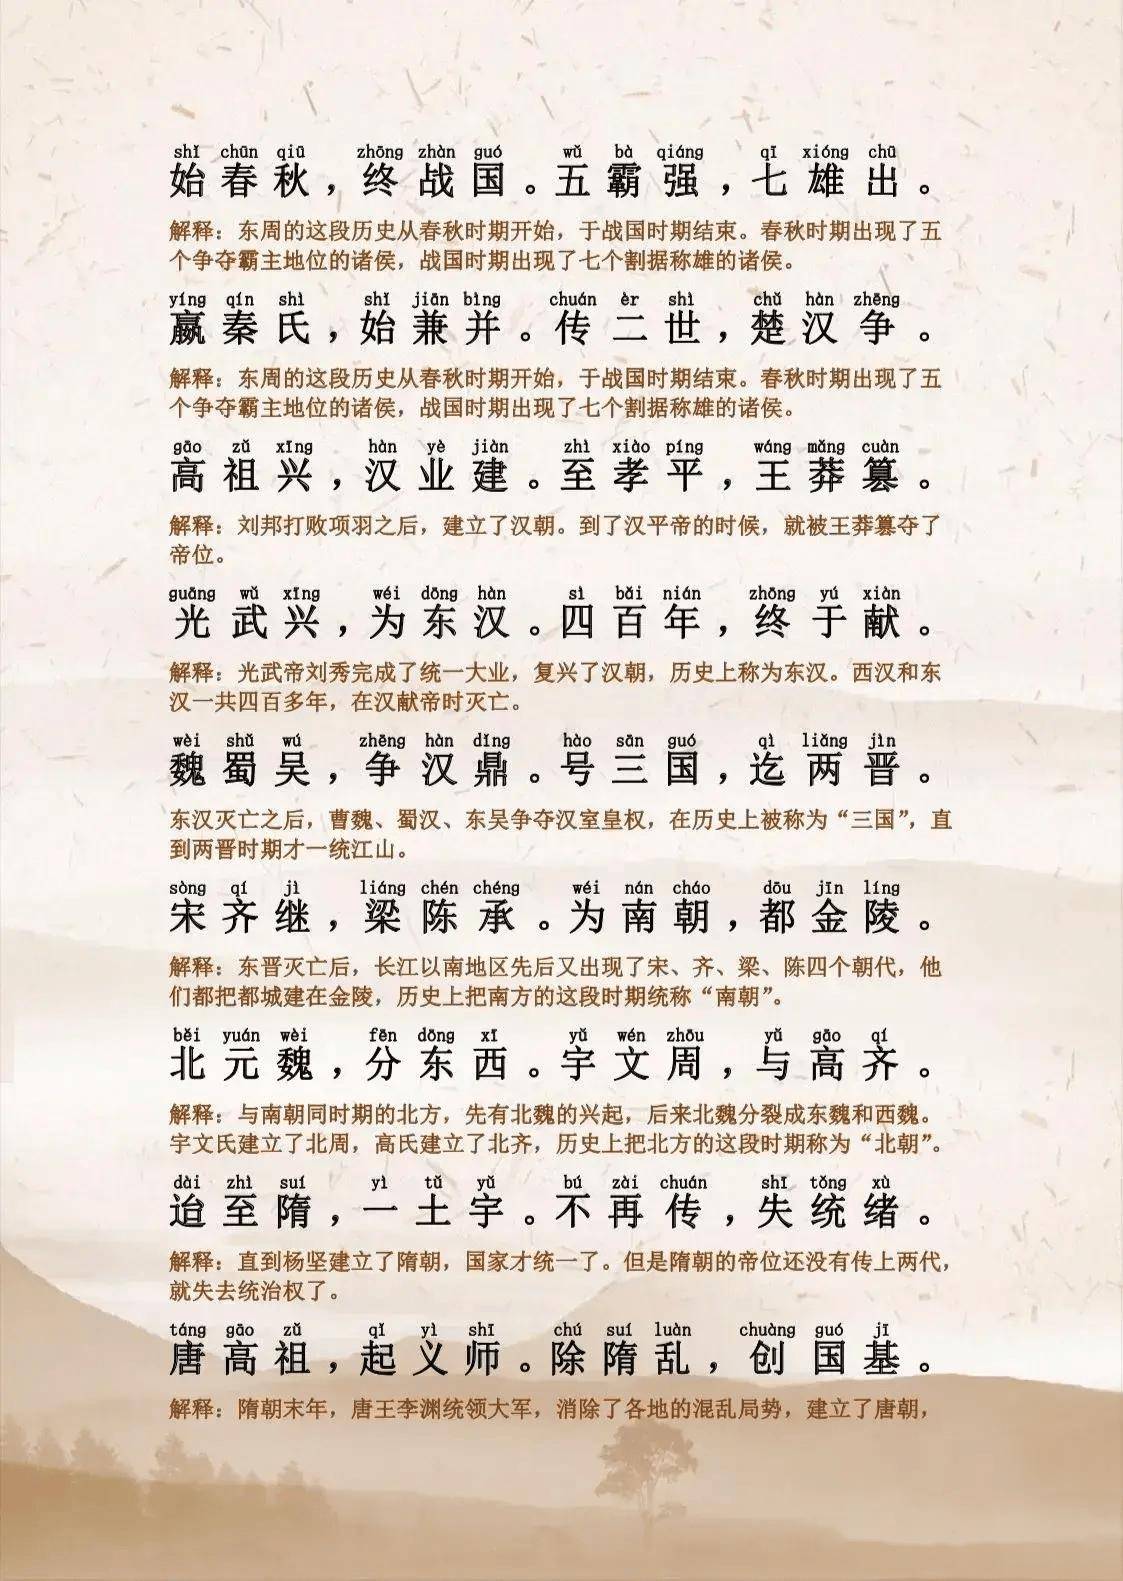 shǐ chūn qiū zhōng zhàn guó wǔ bà qiáng qī xióng chū
始春秋，终战国。五霸强，七雄出。
解释：东周的这段历史从春秋时期开始，于战国时期结束。春秋时期出现了五
个争夺霸主地位的诸侯，战国时期出现了七个割据称雄的诸侯。
yíng qín shì shǐ jiān bìng chuán èr shì chǔ hàn zhēng
嬴秦氏，始兼并。传二世，楚汉争。
解释：东周的这段历史从春秋时期开始，于战国时期结束。春秋时期出现了五
个争夺霸主地位的诸侯，战国时期出现了七个割据称雄的诸侯。
gāo zǔ xīng hàn yè jiàn zhì xiào píng wáng mǎng cuàn
高祖兴，汉业建。至孝平，王莽篡。
解释：刘邦打败项羽之后，建立了汉朝。到了汉平帝的时候，就被王莽篡夺了
帝位。
guāng wǔ xīng wéi dōng hàn sì bǎi nián zhōng yú xiàn
光武兴，为东汉。四百年，终于献。
解释：光武帝刘秀完成了统一大业，复兴了汉朝，历史上称为东汉。西汉和东
汉一共四百多年，在汉献帝时灭亡。
wèi shǔ wú zhēng hàn dǐng hào sān guó qì liǎng jìn
魏蜀吴，争汉鼎。号三国，迄两晋。
东汉灭亡之后，曹魏、蜀汉、东吴争夺汉室皇权，在历史上被称为“三国”，直
到两晋时期才一统江山。
sòng qí jì liáng chén chéng wéi nán cháo dōu jīn líng
宋齐继，梁陈承。为南朝，都金陵。
解释：东晋灭亡后，长江以南地区先后又出现了宋、齐、梁、陈四个朝代，他
们都把都城建在金陵，历史上把南方的这段时期统称“南朝”。
běi yuán wèi fēn dōng xī yǔ wén zhōu yǔ gāo qí
北元魏，分东西。宇文周，与高齐。
解释：与南朝同时期的北方，先有北魏的兴起，后来北魏分裂成东魏和西魏。
宇文氏建立了北周，高氏建立了北齐，历史上把北方的这段时期称为“北朝”。
dài zhì suí yì tǔ yǔ bú zài chuán shī tǒng xù
迨至隋，一土宇。不再传，失统绪。
解释：直到杨坚建立了隋朝，国家才统一了。但是隋朝的帝位还没有传上两代，
就失去统治权了。
táng gāo zǔ qǐ yì shī chú suí luàn chuàng guó jī
唐高祖，起义师。除隋乱，创国基。
解释：隋朝末年，唐王李渊统领大军，消除了各地的混乱局势，建立了唐朝，